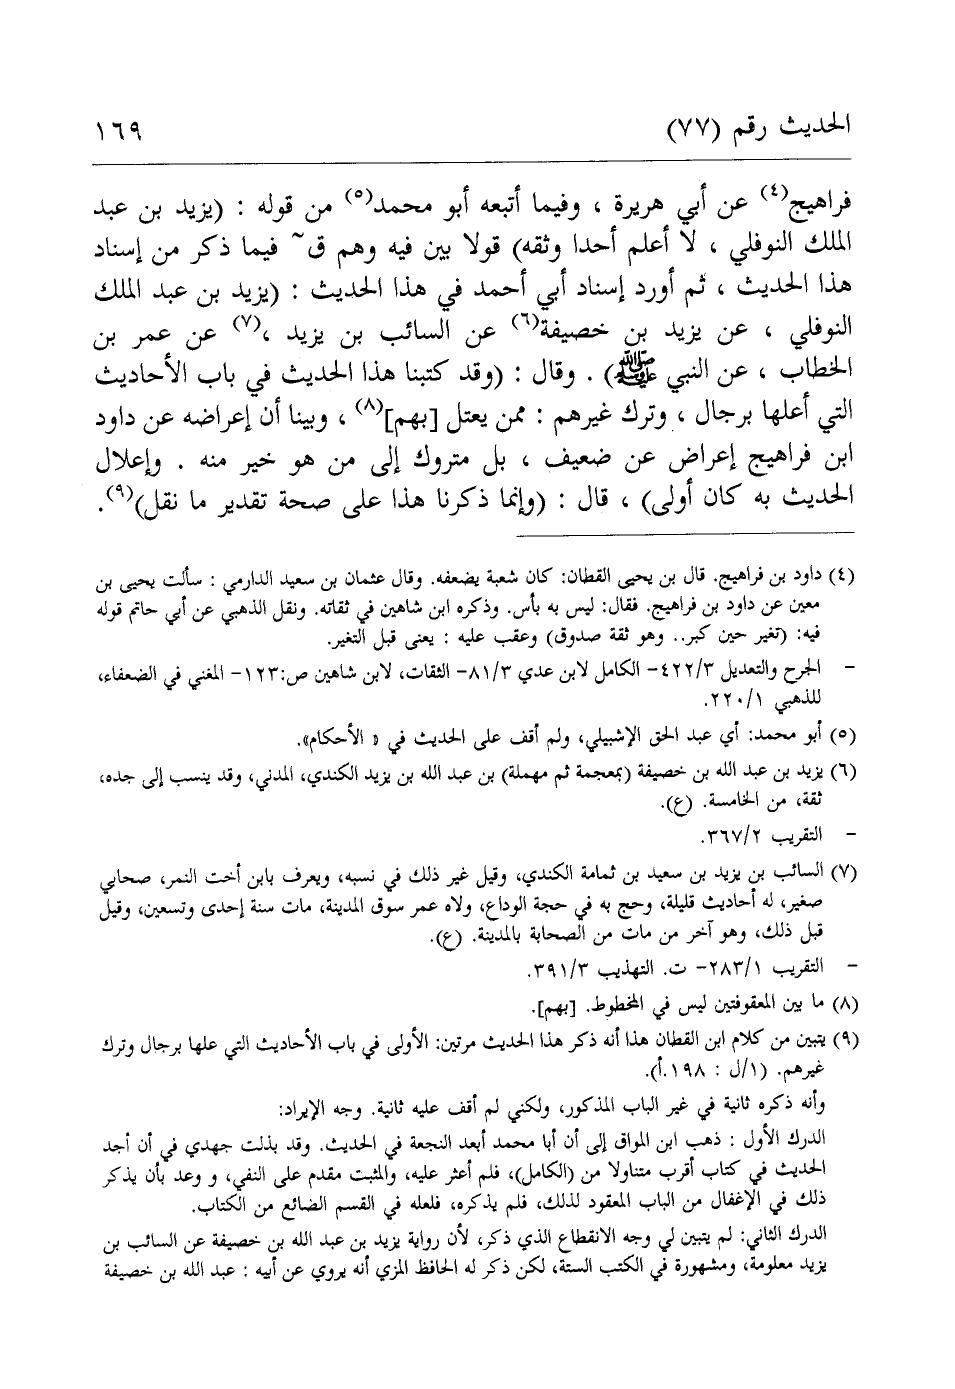 الحديث رقم (٧٧)
١٦٩
فراهيج(٤) عن أبي هريرة ، وفيما أتبعه أبو محمد(٥) من قوله : (يزيد بن عبد
الملك النوفلي ، لا أعلم أحدا وثقه) قولا بين فيه وهم ق~ فيما ذكر من إسناد
هذا الحديث ، ثم أورد إسناد أبي أحمد في هذا الحديث : (يزيد بن عبد الملك
النوفلي ، عن يزيد بن خصيفة(٦) عن السائب بن يزيد ،(٧) عن عمر بن
الخطاب ، عن النبي ﷺ) . وقال : (وقد كتبنا هذا الحديث في باب الأحاديث
التي أعلها برجال ، وترك غيرهم : ممن يعتل [بهم](٨) ، وبينا أن إعراضه عن داود
ابن فراهيج إعراض عن ضعيف ، بل متروك إلى من هو خير منه . وإعلال
الحديث به كان أولى) ، قال : (وإنما ذكرنا هذا على صحة تقدير ما نقل)(٩).
(٤) داود بن فراهيج. قال بن يحيى القطان: كان شعبة يضعفه. وقال عثمان بن سعيد الدارمي : سألت يحيى بن
معين عن داود بن فراهيج. فقال: ليس به بأس. وذكره ابن شاهين في ثقاته. ونقل الذهبي عن أبي حاتم قوله
فيه: (تغير حين كبر.. وهو ثقة صدوق) وعقب عليه : يعنى قبل التغير.
- الجرح والتعديل ٤٢٢/٣- الكامل لابن عدي ٨١/٣- الثقات، لابن شاهين ص:١٢٣- المغني في الضعفاء،
للذهبي ٢٢٠/١.
(٥) أبو محمد: أي عبد الحق الإشبيلي، ولم أقف على الحديث في « الأحكام».
(٦) يزيد بن عبد الله بن خصيفة (بمعجمة ثم مهملة) بن عبد الله بن يزيد الكندي، المدني، وقد ينسب إلى جده،
ثقة، من الخامسة. (ع).
- التقريب ٣٦٧/٢.
(٧) السائب بن يزيد بن سعيد بن ثمامة الكندي، وقيل غير ذلك في نسبه، ويعرف بابن أخت النمر، صحابي
صغير، له أحاديث قليلة، وحج به في حجة الوداع، ولاه عمر سوق المدينة، مات سنة إحدى وتسعين، وقيل
قبل ذلك، وهو آخر من مات من الصحابة بالمدينة. (ع).
- التقريب ٢٨٣/١- ت. التهذيب ٣٩١/٣.
(٨) ما بين المعقوفتين ليس في المخطوط. [بهم].
(٩) يتبين من كلام ابن القطان هذا أنه ذكر هذا الحديث مرتين: الأولى في باب الأحاديث التي علها برجال وترك
غيرهم. (١/ل : ١٩٨.أ).
وأنه ذكره ثانية في غير الباب المذكور، ولكني لم أقف عليه ثانية. وجه الإيراد:
الدرك الأول : ذهب ابن المواق إلى أن أبا محمد أبعد النجعة في الحديث. وقد بذلت جهدي في أن أجد
الحديث في كتاب أقرب متناولا من (الكامل)، فلم أعثر عليه، والمثبت مقدم على النفي، و وعد بأن يذكر
ذلك في الإغفال من الباب المعقود لذلك، فلم يذكره، فلعله في القسم الضائع من الكتاب.
الدرك الثاني: لم يتبين لي وجه الانقطاع الذي ذكر، لأن رواية يزيد بن عبد الله بن خصيفة عن السائب بن
يزيد معلومة، ومشهورة في الكتب الستة، لكن ذكر له الحافظ المزي أنه يروي عن أبيه : عبد الله بن خصيفة